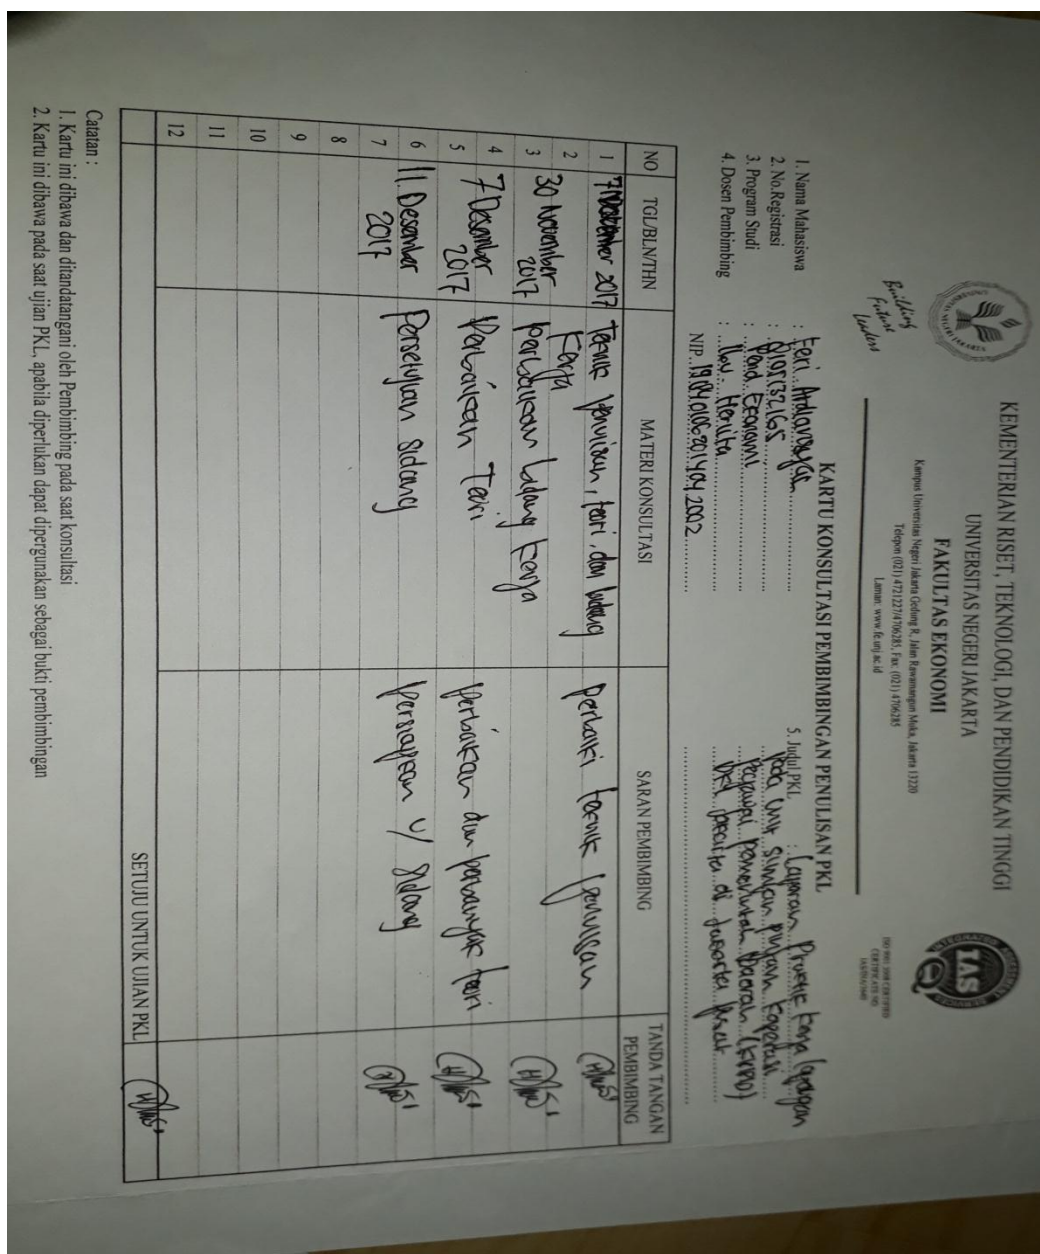 KEMENTERIAN RISET, TEKNOLOGI, DAN PENDIDIKAN TINGGI
UNIVERSITAS NEGERI JAKARTA
FAKULTAS EKONOMI
Kampus Universitas Negeri Jakarta Gedung R, Jalan Rawamangun Muka, Jakarta 13220
Telepon (021) 4721227/4706285, Fax: (021) 4706285
Laman: www.fe.unj.ac.id
Building
Future
Leaders
IAS
ISO 9001:2008 CERTIFIED
CERTIFICATE NO
KARTU KONSULTASI PEMBIMBINGAN PENULISAN PKL
1. Nama Mahasiswa : Feri
2. No.Registrasi : 8105132165
3. Program Studi : Pend. Ekonomi
4. Dosen Pembimbing : Herlita
NIP. 198401062014042002
5. Judul PKL : Laporan Praktik Kerja Lapangan
Pada Unit Simpan Pinjam Koperasi
Pegawai Pemerintah Daerah (KPPD)
DKI Jakarta di Jakarta Pusat
NO TGL/BLN/THN MATERI KONSULTASI SARAN PEMBIMBING TANDA TANGAN PEMBIMBING
1 2017 Teknik penulisan, teori, dan bidang Perbaiki teknik penulisan
2 Kerja
3 30 November 2017 perbaikan bidang kerja
4 7 Desember Perbaikan Teori perbaikan dan perbanyak teori
5 2017
6 11. Desember Persetujuan sidang Persiapkan u/ sidang
7 2017
8
9
10
11
12
SETUJU UNTUK UJIAN PKL
Catatan :
1. Kartu ini dibawa dan ditandatangani oleh Pembimbing pada saat konsultasi
2. Kartu ini dibawa pada saat ujian PKL, apabila diperlukan dapat dipergunakan sebagai bukti pembimbingan